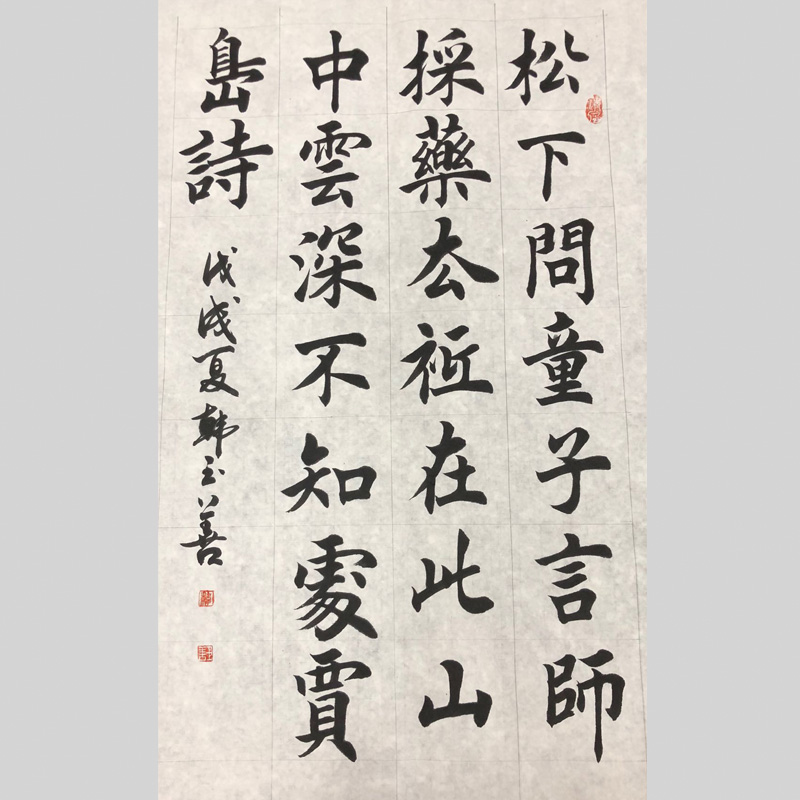 松下問童子言師
採藥去祗在此山
中雲深不知處賈
島詩
戊戌夏韩玉善